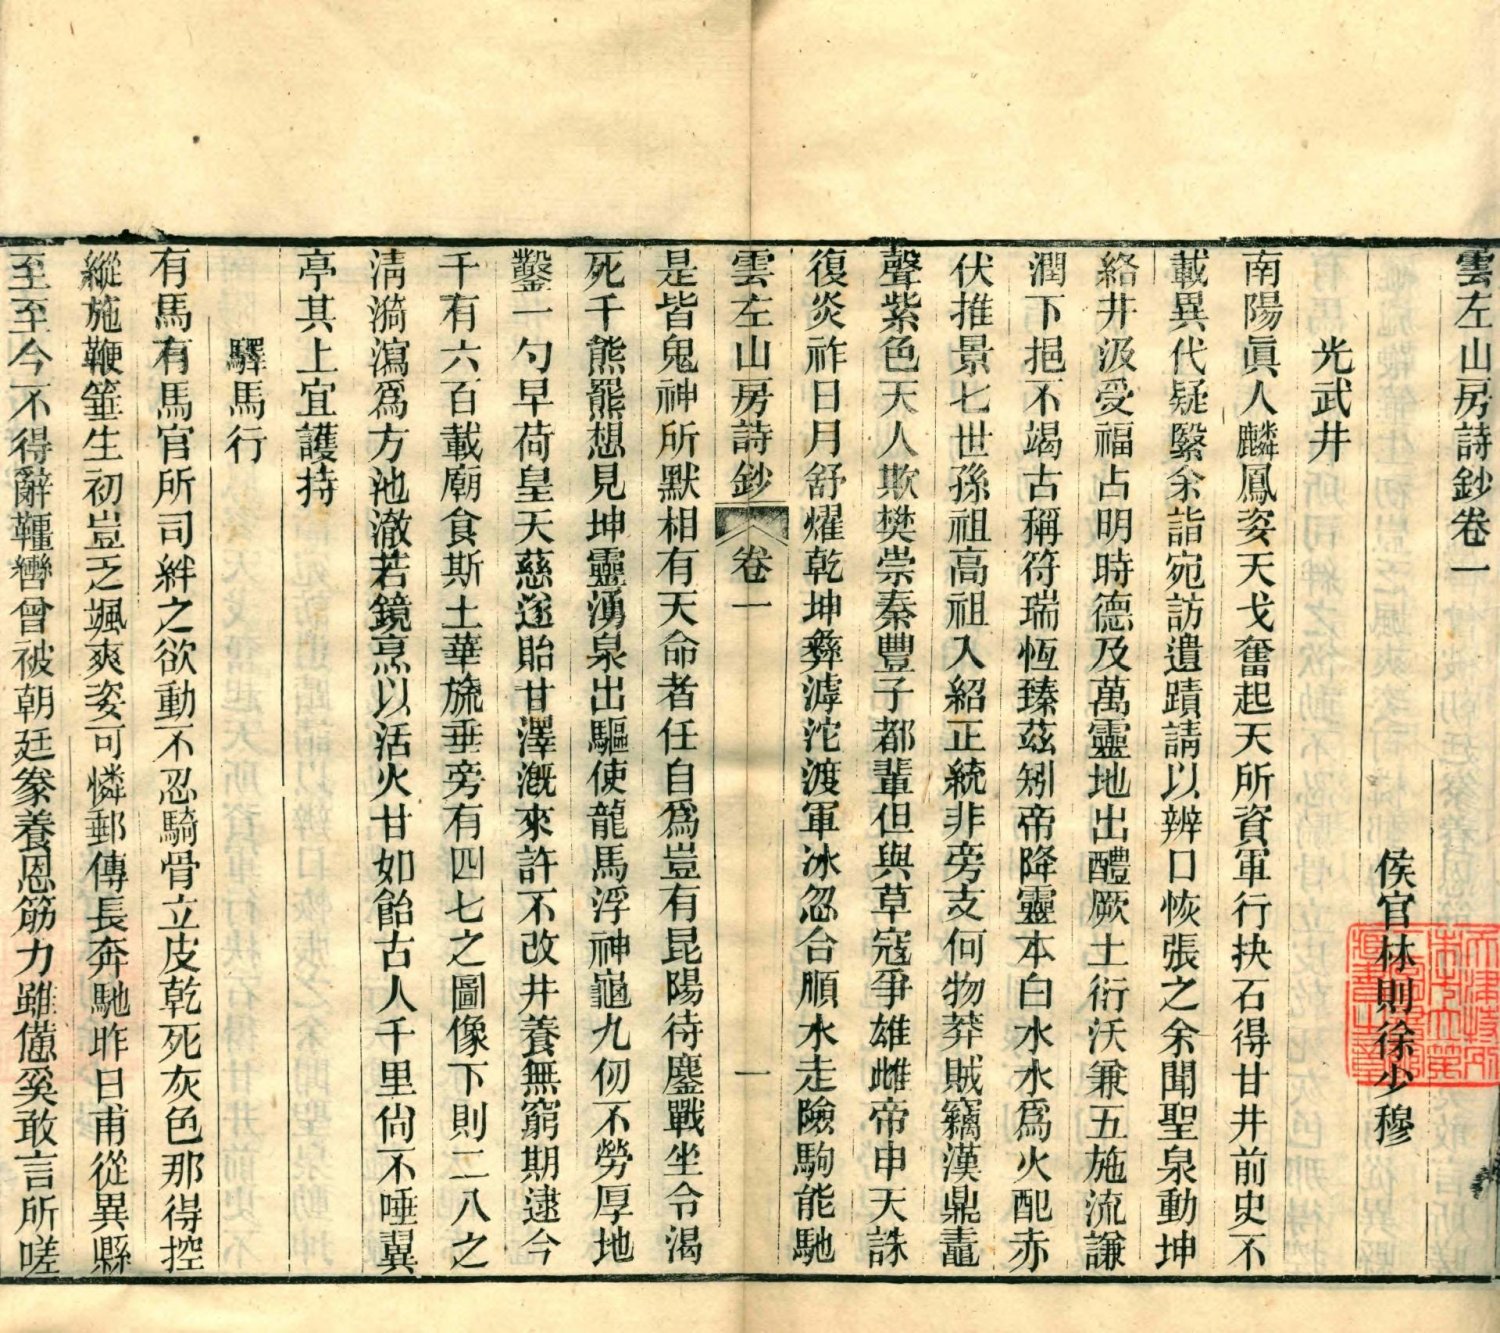 雲左山房詩鈔卷一
侯官林則徐少穆
光武井
南陽眞人麟鳳姿天戈奮起天所資軍行抉石得甘井前史不
載異代疑繄余詣宛訪遺蹟請以辨口恢張之余聞聖泉動坤
絡井汲受福占明時德及萬靈地出醴厥土衍沃兼五施流謙
潤下挹不竭古稱符瑞恆臻茲矧帝降靈本白水水爲火配赤
伏推景七世孫祖高祖入紹正統非旁支何物莽賊竊漢鼎鼃
聲紫色天人欺樊崇秦豐子都輩但與草寇爭雄雌帝申天誅
復炎祚日月舒燿乾坤彝滹沱渡軍冰忽合順水走險駒能馳
雲左山房詩鈔 卷一 一
是皆鬼神所默相有天命者任自爲豈有昆陽待鏖戰坐令渴
死千熊羆想見坤靈湧泉出驅使龍馬浮神龜九仞不勞厚地
鑿一勺早荷皇天慈遂貽甘澤漑來許不改井養無窮期逮今
千有六百載廟食斯土華旒垂旁有四七之圖像下則二八之
淸漪瀉爲方池澈若鏡烹以活火甘如飴古人千里尙不唾翼
亭其上宜護持
驛馬行
有馬有馬官所司絆之欲動不忍騎骨立皮乾死灰色那得控
縱施鞭箠生初豈乏颯爽姿可憐郵傳長奔馳昨日甫從異縣
至至今不得辭韁轡曾被朝廷豢養恩筋力雖憊奚敢言所嗟